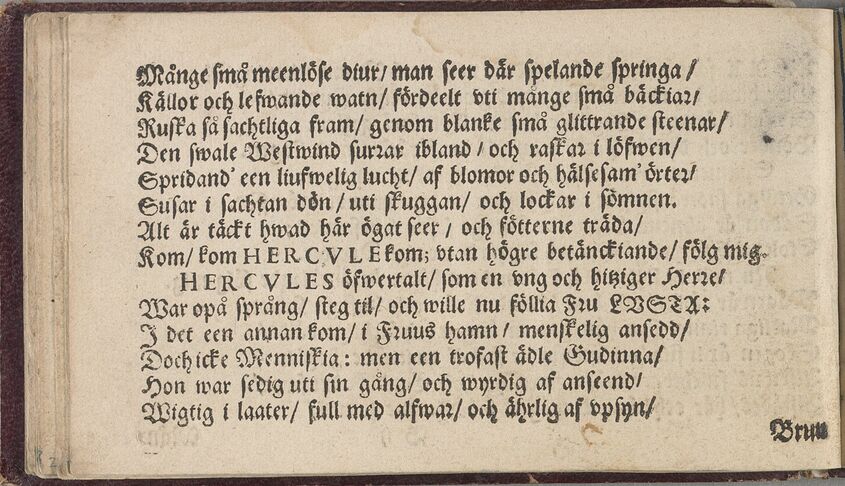 Månge små meenlöse diur/ man seer där spelande springa/
Källor och lefwande watn/ fördeelt vti månge små bäckiar/
Ruska så sachtliga fram/ genom blanke små glittrande steenar/
Den swale Westwind surrar ibland/ och raskar i löfwen/
Spridand' een liufwelig lucht/ af blomor och hälsesam' örter/
Susar i sachtan dön/ uti skuggan/ och lockar i sömnen.
Alt är täckt hwad här ögat seer/ och fötterne träda/
Kom/ kom HERCVLE kom; vtan högre betänckiande/ fölg mig.
HERCVLES öfwertalt/ som en vng och hitziger Herre/
War opå språng/ steg til/ och wille nu föllia Fru LVSTA:
J det een annan kom/ i Fruus hamn/ menskelig ansedd/
Doch icke Menniskia: men een trofast ädle Gudinna/
Hon war sedig uti sin gång/ och wyrdig af anseend/
Wigtig i laater/ full med alfwar/ och ährlig af vpsyn/
Brun